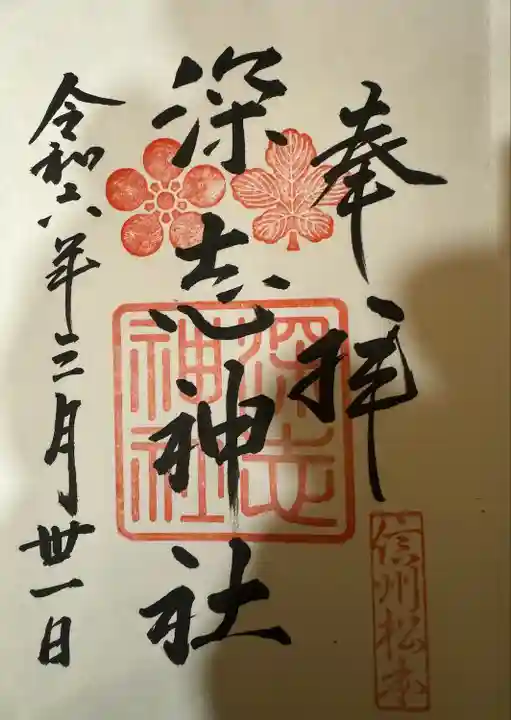 奉拝
信州松本
深志神社
深志神社
令和六年三月丗一日